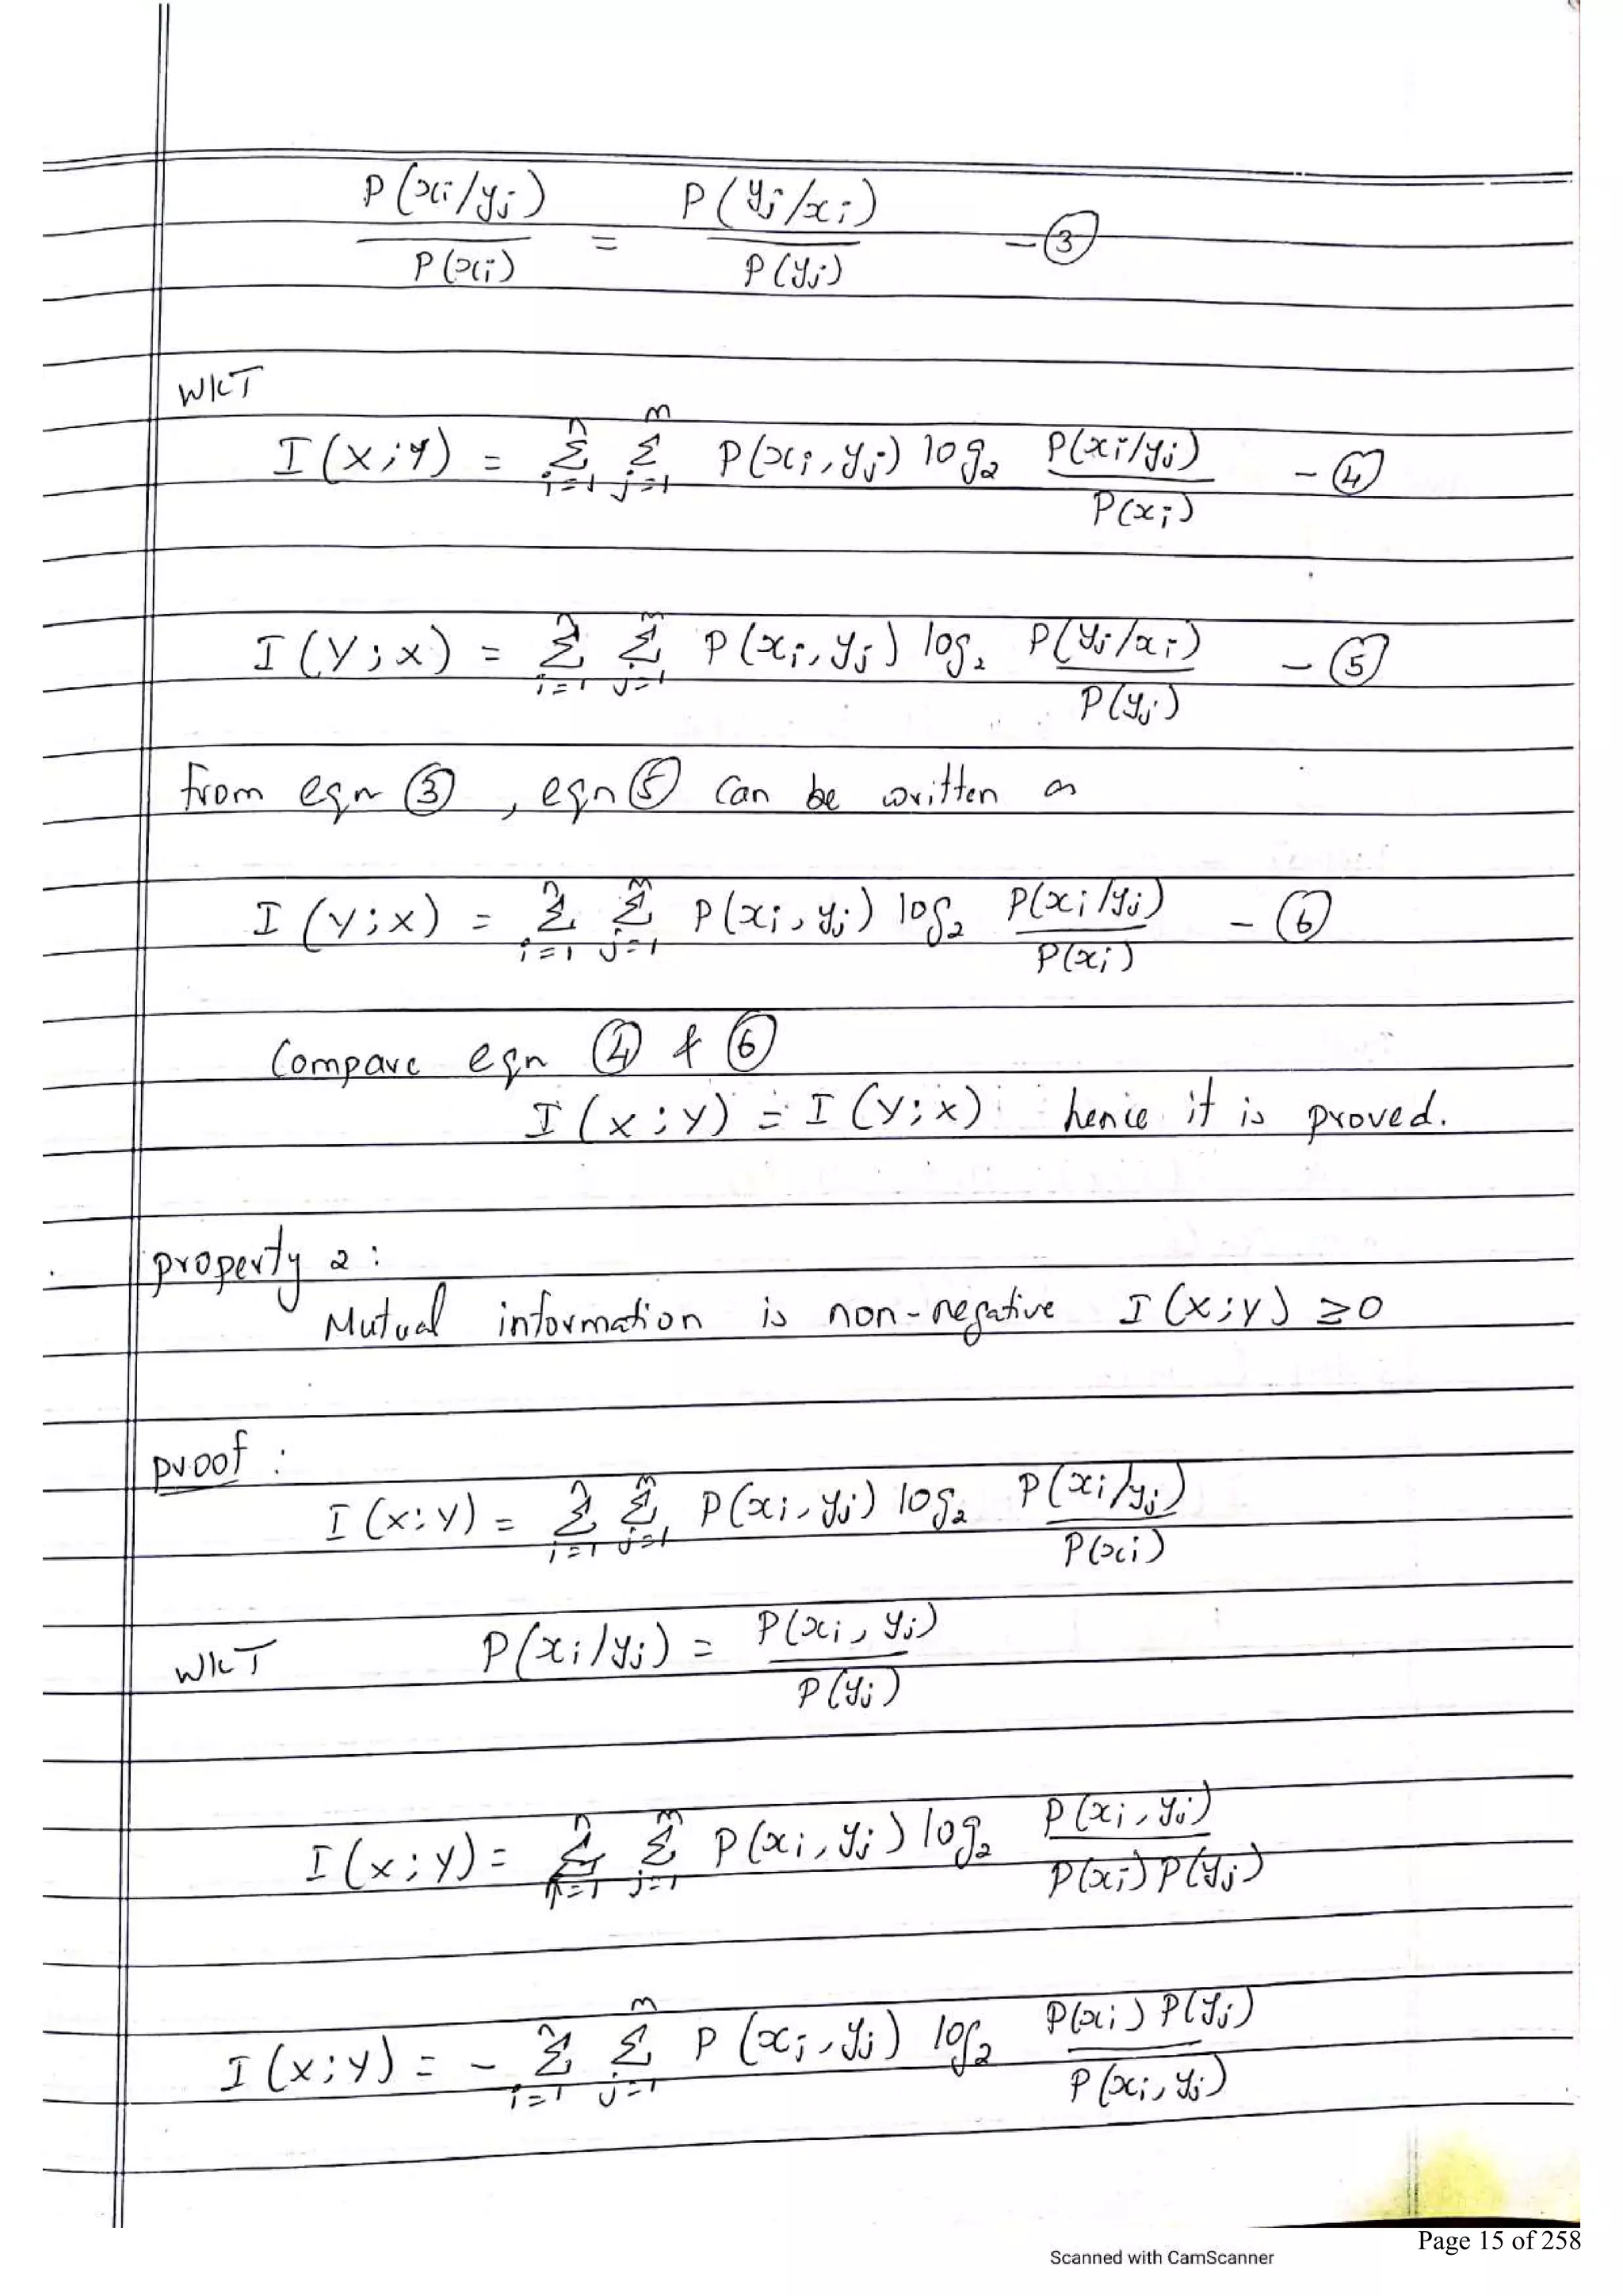 P(xi/yj) / P(xi) = P(yj/xi) / P(yj) - ③
WKT
I(X;Y) = n Σ i=1 m Σ j=1 P(xi, yj) log2 P(xi/yj) / P(xi) - ④
I(Y;X) = n Σ i=1 m Σ j=1 P(xi, yj) log2 P(yj/xi) / P(yj) - ⑤
From eqn ③, eqn ⑤ can be written as
I(Y;X) = n Σ i=1 m Σ j=1 P(xi, yj) log2 P(xi/yj) / P(xi) - ⑥
Compare eqn ④ & ⑥
I(X;Y) = I(Y;X) hence it is proved.
property 2:
Mutual information is non-negative I(X;Y) ≥ 0
proof:
I(X:Y) = n Σ i=1 m Σ j=1 P(xi, yj) log2 P(xi/yj) / P(xi)
WKT P(xi/yj) = P(xi, yj) / P(yj)
I(X;Y) = n Σ i=1 m Σ j=1 P(xi, yj) log2 P(xi, yj) / P(xi) P(yj)
I(X;Y) = - n Σ i=1 m Σ j=1 P(xi, yj) log2 P(xi) P(yj) / P(xi, yj)
Page 15 of 258
Scanned with CamScanner